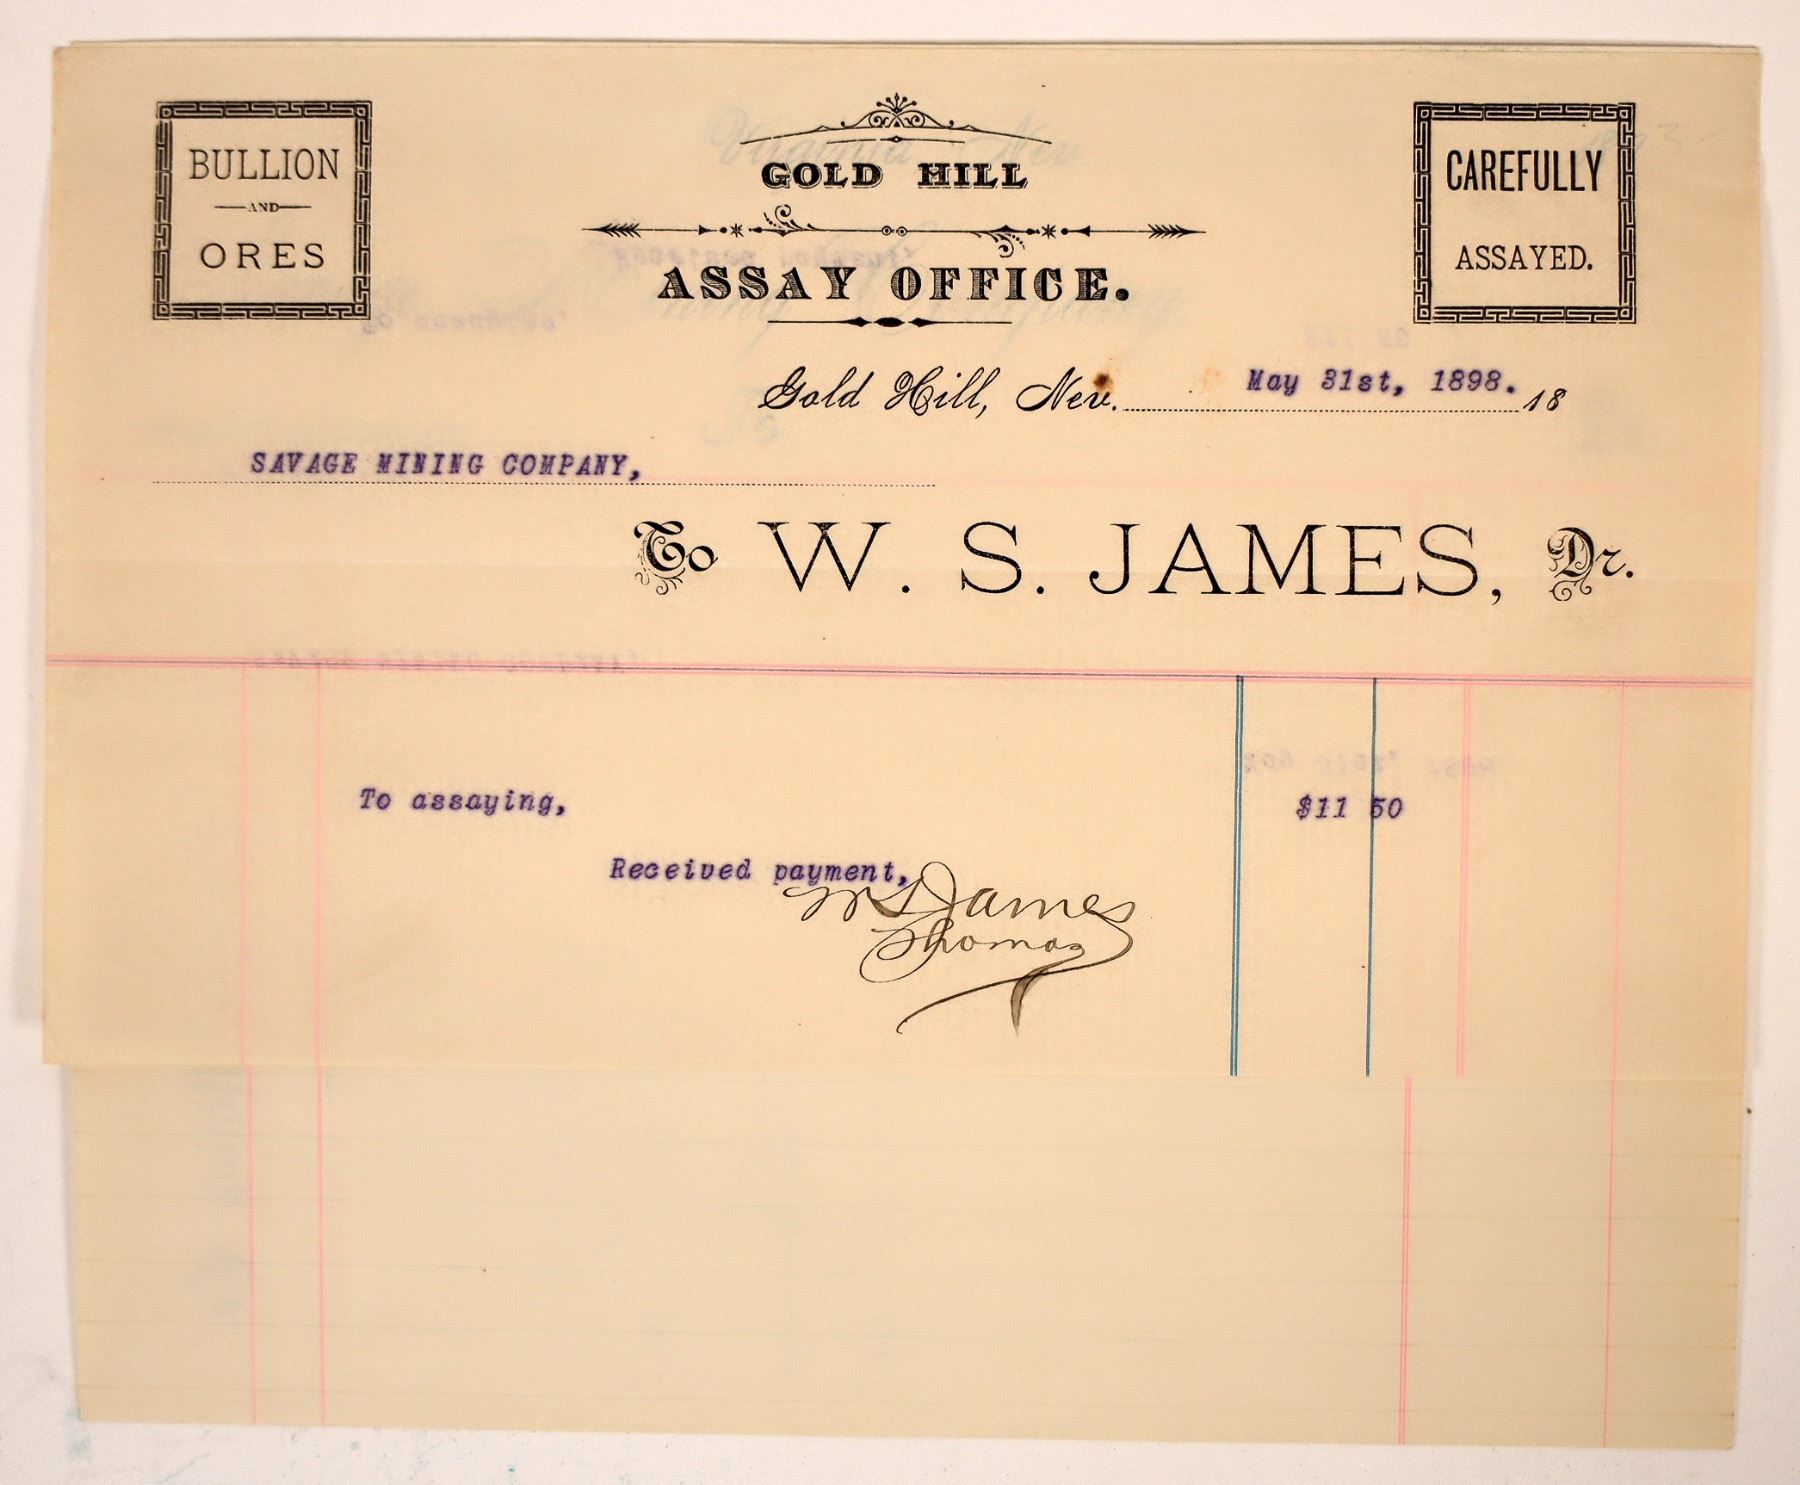 BULLION
AND
ORES
GOLD HILL
ASSAY OFFICE.
CAREFULLY
ASSAYED.
Gold Hill, Nev. May 31st, 1898. 18
SAVAGE MINING COMPANY,
To W. S. JAMES, Dr.
To assaying, $11 50
Received payment,
W S James
Thomas